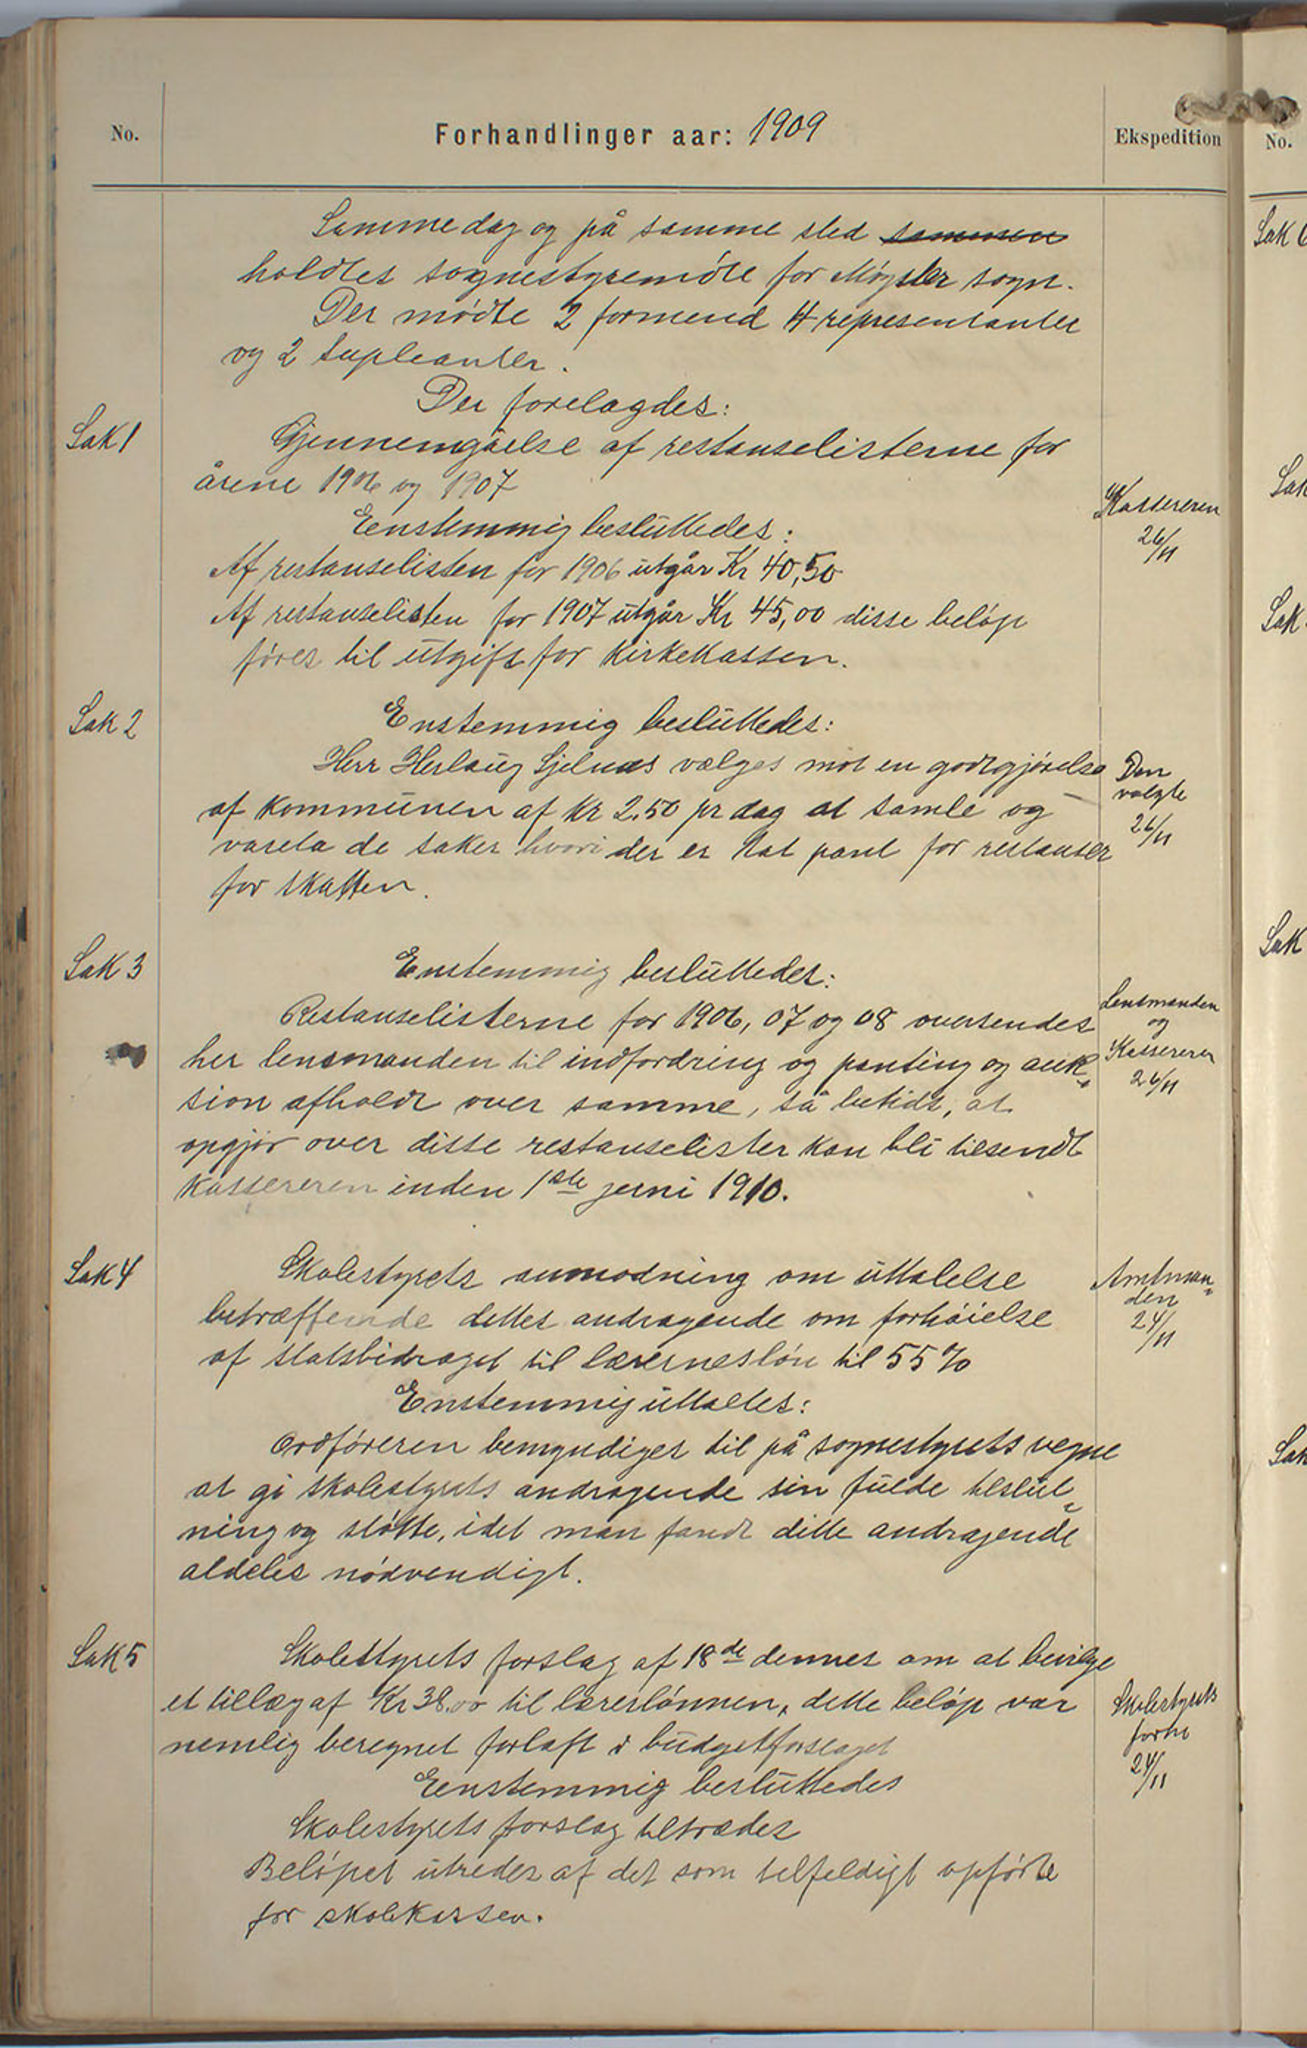 No.
Forhandlinger aar: 1909
Ekspedition
No.
Samme dag og på samme sted sammen
holdtes sognestyremöte for Møgster sogn.
Der mødte 2 formend 4 representanter
og 2 supleanter.
Der forelagdes:
Sak 1
Gjennemgåelse af restanselisterne for
årene 1906 og 1907
Eenstemmig besluttedes:
Kassereren
26/11
Af restanselisten for 1906 utgår Kr 40,50
Af restanselisten for 1907 utgår Kr 45,00 disse beløp
føres til utgift for kirkekassen.
Sak 2
Enstemmig besluttedes:
Herr Herlaug Sjelnæs vælges mot en godtgjørelse
af kommunen af kr 2.50 pr dag at samle og
vareta de saker hvori der er tat pant for restanser
for skatten.
Den
valgte
26/11
Sak 3
Enstemmig besluttedes:
Restanselisterne for 1906, 07 og 08 oversendes
her lensmanden til indfordring og panting og auk-
sion afholdt over samme, så betids, at
opgjør over disse restanselister kan bli tilsendt
kassereren inden 1ste juni 1910.
Lensmanden
og
Kassereren
26/11
Sak 4
Skolestyrets anmodning om uttalelse
betræffende dettes andragende om forhöielse
af statsbidraget til lærernesløn til 55%
Enstemmig uttaltes:
Ordföreren bemyndiges til på sognestyrets vegne
at gi skolestyrets andragende sin fulde tilslut-
ning og støtte, idet man fandt dette andragende
aldeles nødvendigt.
Amtman-
den
24/11
Sak 5
Skolestyrets forslag af 18de dennes om at bevilge
et tillæg af Kr 38.00 til lærerlønnen, dette beløp var
nemlig beregnet forlaft i budgetforslaget
Eenstemmig besluttedes
Skolestyrets forslag tiltrædes
Beløpet utredes af det som tilfeldigt opførte
for skolekassen.
Skolestyrets
form
24/11
Sak 6
Sak
Sak
Sak
Sak